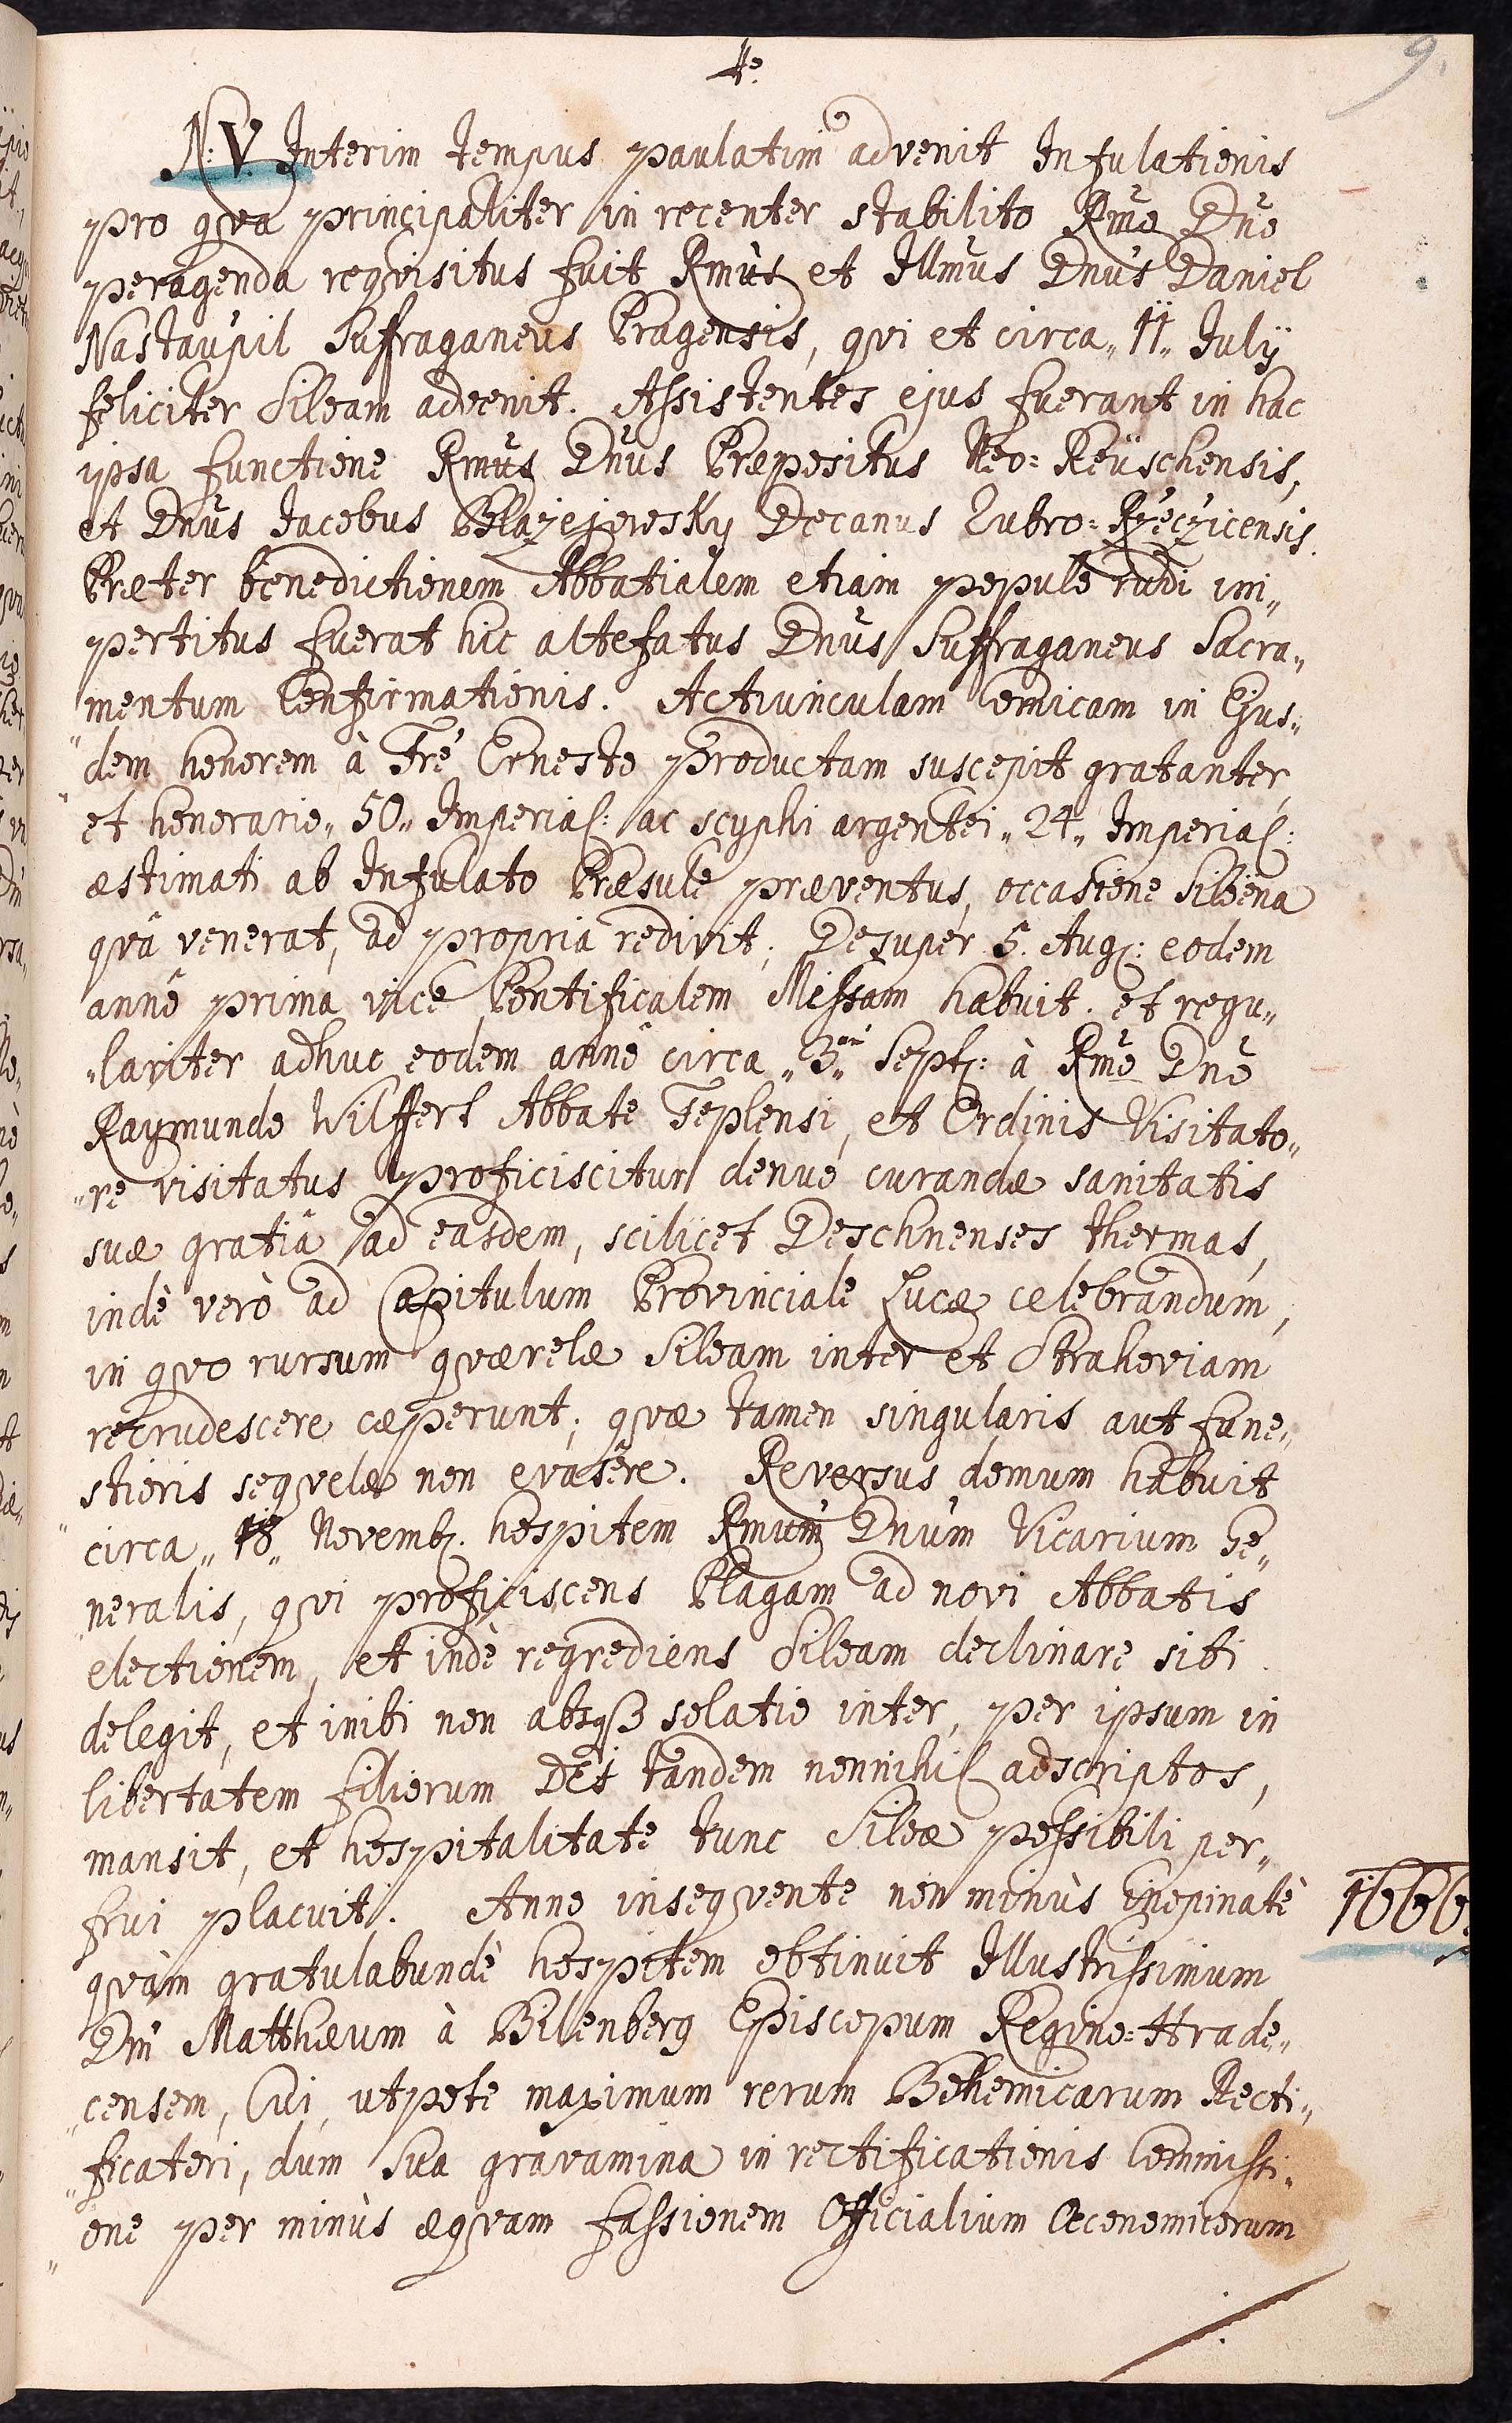 4º.
9.
N: V. Interim tempus paulatim advenit Infulationis
pro qva principaliter in recenter stabilito Rm̃o Dn̄o
peragenda reqvisitus fuit Rmũs et Illmũs Dnũs Daniel
Nastaupil Suffraganeus Pragensis, qvi et circa „11„ Julÿ
feliciter Siloam advenit. Assistentes ejus fuerant in hac
ipsa functione Rmũs Dnũs Præpositus Neo=Reüschensis,
et Dnũs Jacobus Blažejovsky Decanus Rubro=Ržečžicensis.
Præter benedictionem Abbatialem etiam populo rudi im„
pertitus fuerat hic altefatus Dnũs Suffraganeus Sacra„
mentum Confirmationis. Actiunculam comicam in Ejus„
„dem honorem à Fr̃e Ernesto productam suscepit gratanter,
et honorario „50„ Imperial: ac scyphi argentei „24„ Imperial:
æstimati ab Infulato Præsule præventus, occasione Siloëna
qvâ venerat, ad propria redivit; Desuper 5. Aug: eodem
annô prima vice Pontificalem Missam habuit. et regu„
„lariter adhuc eodem annô circa „3am„ Sept: à Rm̃o Dn̄o
Raymundo Wilffert Abbate Teplensi, et Ordinis Visitato„
„re visitatus proficiscitur denuò curandæ sanitatis
suæ gratiâ ad easdem, scilicet Deschnenses thermas,
indè verò ad Capitulum Provinciale Lucæ celebrandum,
in qvo rursum qværelæ Siloam inter et Strahoviam
recrudescere cæperunt; qvæ tamen singularis aut fune„
stioris seqvelæ non evasêre. Reversus domum habuit
circa „18„ Novemb. hospitem Rmũm Dnũm Vicarium Ge„
„neralis, qvi proficiscens Plagam ad novi Abbatis
electionem, et indè regrediens Siloam declinare sibi
delegit, et inibi non absqꝫ solatio inter, per ipsum in
libertatem filiorum Dei tandem nonnihil adscriptos,
mansit, et hospitalitate tunc Siloæ possibili per„
frui placuit. Anno inseqvente non minùs inopinatè
1666.
qvàm gratulabundè hospitem obtinuit Illustrissimum
Dn̄ Matthæum à Bilenberg Episcopum Regino=Hrade„
„censem, Cui, utpote maximum rerum Bohemicarum Recti„
„ficatori, dum sua gravamina in rectificationis Commissi„
„one per minùs æqvam fassionem Officialium Œconomicorum